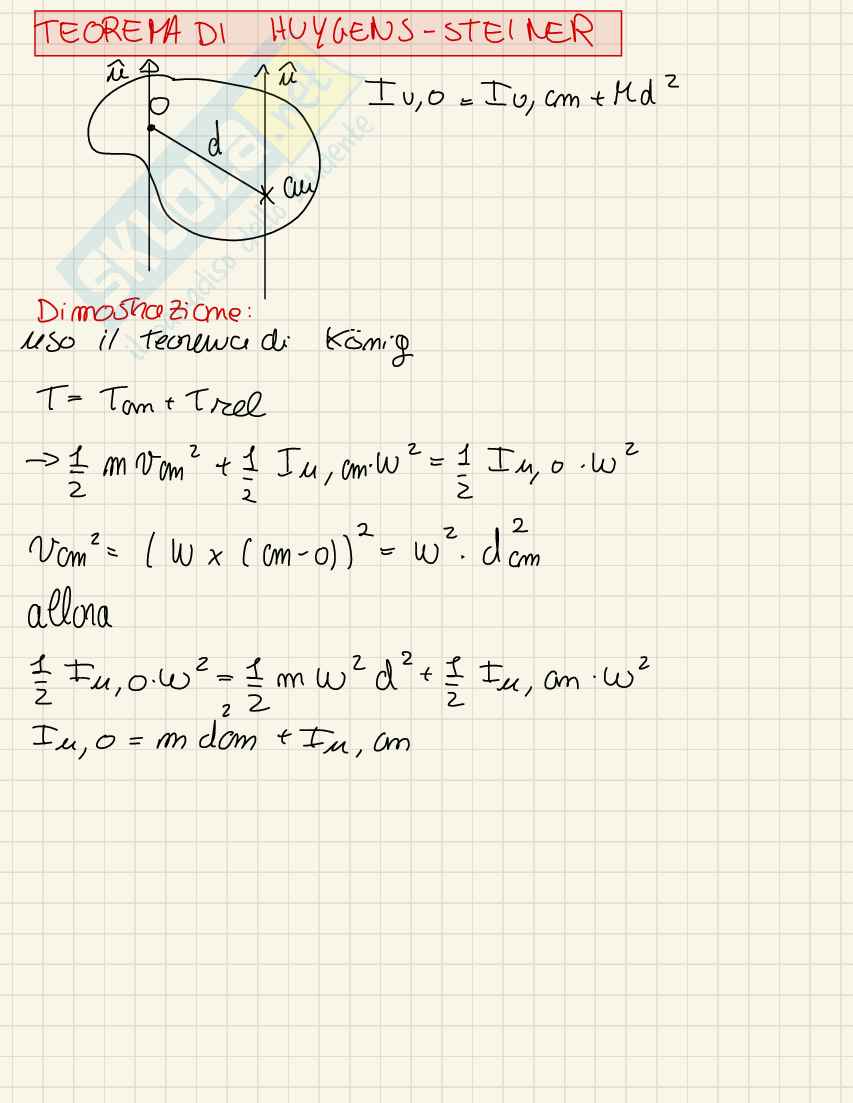 TEOREMA DI HUYGENS-STEINER
û û
O
d
cm
I u,o = I u, cm + Md²
SKUOLA.net
il paradiso dello studente
Dimostrazione:
uso il teorema di König
T = Tcm + Trel
→ 1/2 m vcm² + 1/2 I u, cm · w² = 1/2 I u, o · w²
vcm² = ( w × (cm-o))² = w² · d²cm
allora
1/2 I u, o · w² = 1/2 m w² d² + 1/2 I u, cm · w²
I u, o = m d²cm + I u, cm